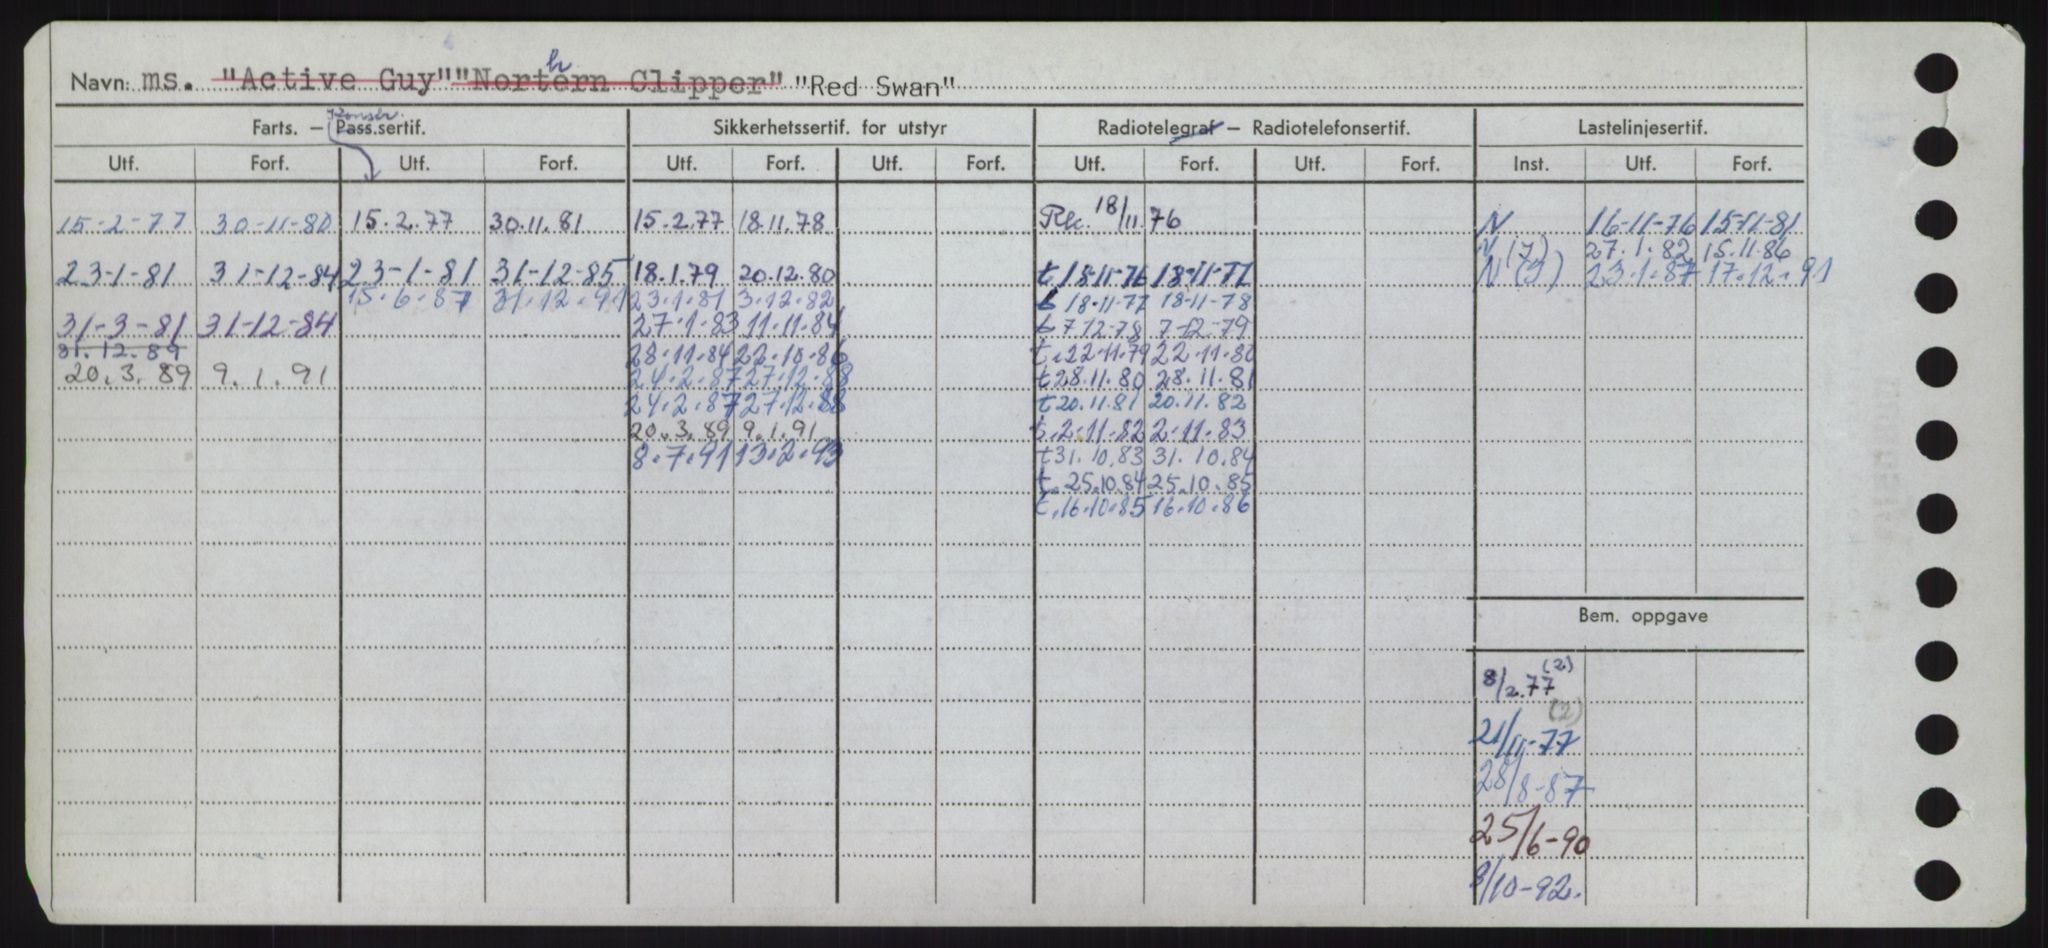 Navn: ms. "Active Guy" "Northern Clipper" "Red Swan"
Farts. — Pass.sertif. Sikkerhetssertif. for utstyr Radiotelegraf — Radiotelefonsertif. Lastelinjesertif.
Konstr.
Utf. Forf. Utf. Forf. Utf. Forf. Utf. Forf. Utf. Forf. Utf. Forf. Inst. Utf. Forf.
15-2-77 30-11-80 15.2.77 30.11.81 15.2.77 18.11.78 Rk. 18/11.76 N 16-11-76 15-11-81
N (7) 27.1.82 15.11.86
23-1-81 31-12-84 23-1-81 31-12-85 18.1.79 20.12.80 t 18-11-76 18-11-77 N (3) 23.1.87 17.12.91
15.6.87 31.12.91 23.1.81 3.12.82 t 18-11-77 18-11-78
31-3-81 31-12-84 27.1.83 11.11.84 t 7-12-78 7-12-79
31.12.89 28.11.84 22.10.86 t.22-11-79 22-11-80
20.3.89 9.1.91 24.2.87 27.12.88 t 28.11.80 28.11.81
24.2.87 27.12.88 t 20.11.81 20.11.82
20.3.89 9.1.91 t.2.11.82 2.11.83
8.7.91 13.2.93 t 31.10.83 31.10.84
t.25.10.84 25.10.85
t.16.10.85 16.10.86
Bem. oppgave
8/2.77 (2)
21/11-77 (2)
28/8-87
25/6-90
8/10-92.